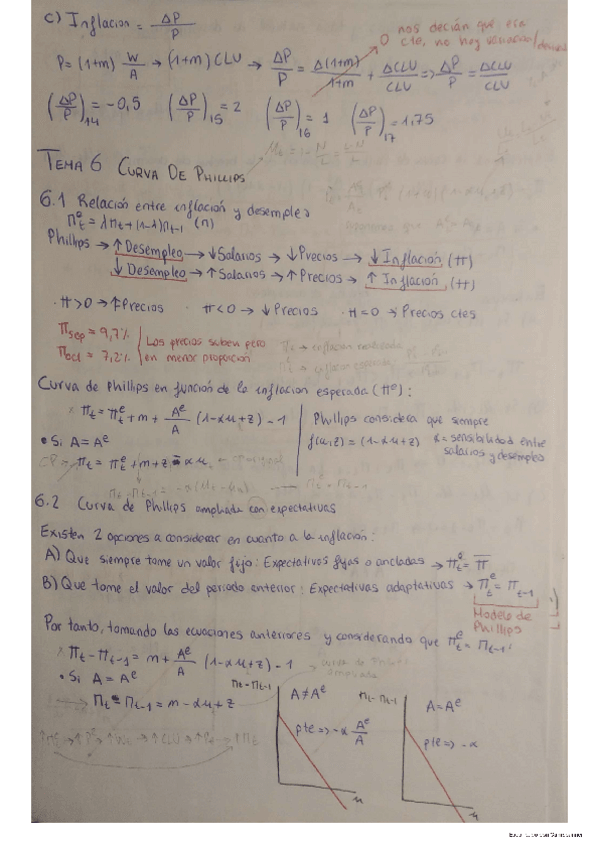 c) Inflacion = ΔP/P
nos decían que era
0 cte, no hay variación
P = (1+m) W/A → (1+m) CLU → ΔP/P = Δ(1+m)/1+m + ΔCLU/CLU ⇒ ΔP/P = ΔCLU/CLU
(ΔP/P)14 = -0,5 (ΔP/P)15 = 2 (ΔP/P)16 = 1 (ΔP/P)17 = 1,75
TEMA 6 CURVA DE PHILLIPS
6.1 Relación entre inflación y desempleo
Πᵉt = λΠt + (1-λ)Πt-1 (Π)
Phillips → ↑ Desempleo → ↓ Salarios → ↓ Precios → ↓ Inflación (π)
↓ Desempleo → ↑ Salarios → ↑ Precios → ↑ Inflación (π)
· π > 0 → ↑ Precios · π < 0 → ↓ Precios · π = 0 → Precios ctes
Πsep = 9,7%
Πoct = 7,2%
Los precios suben pero
en menor proporción
Curva de Phillips en función de la inflacion esperada (πᵉ):
Πt = Πᵉt + m + Aᵉ/A (1-αu+z) - 1
Phillips considera que siempre
f(u,z) = (1-αu+z) α = sensibilidad entre
salarios y desempleo
• Si A = Aᵉ
Πt = Πᵉt + m + z - αu
Πt - Πt-1 = -α(ut - un) Πᵉt = Πt-1
6.2 Curva de Phillips ampliada con expectativas
Existen 2 opciones a considerar en cuanto a la inflación:
A) Que siempre tome un valor fijo: Expectativas fijas o ancladas → Πᵉt = Π̅
B) Que tome el valor del periodo anterior: Expectativas adaptativas → Πᵉt = Πt-1
Modelo de
Phillips
Por tanto, tomando las ecuaciones anteriores y considerando que Πᵉt = Πt-1:
Πt - Πt-1 = m + Aᵉ/A (1-αu+z) - 1
• Si A = Aᵉ
Πt - Πt-1 = m - αu + z
Πt - Πt-1
A ≠ Aᵉ
pte ⇒ -α Aᵉ/A
u
Πt - Πt-1
A = Aᵉ
pte ⇒ -α
u